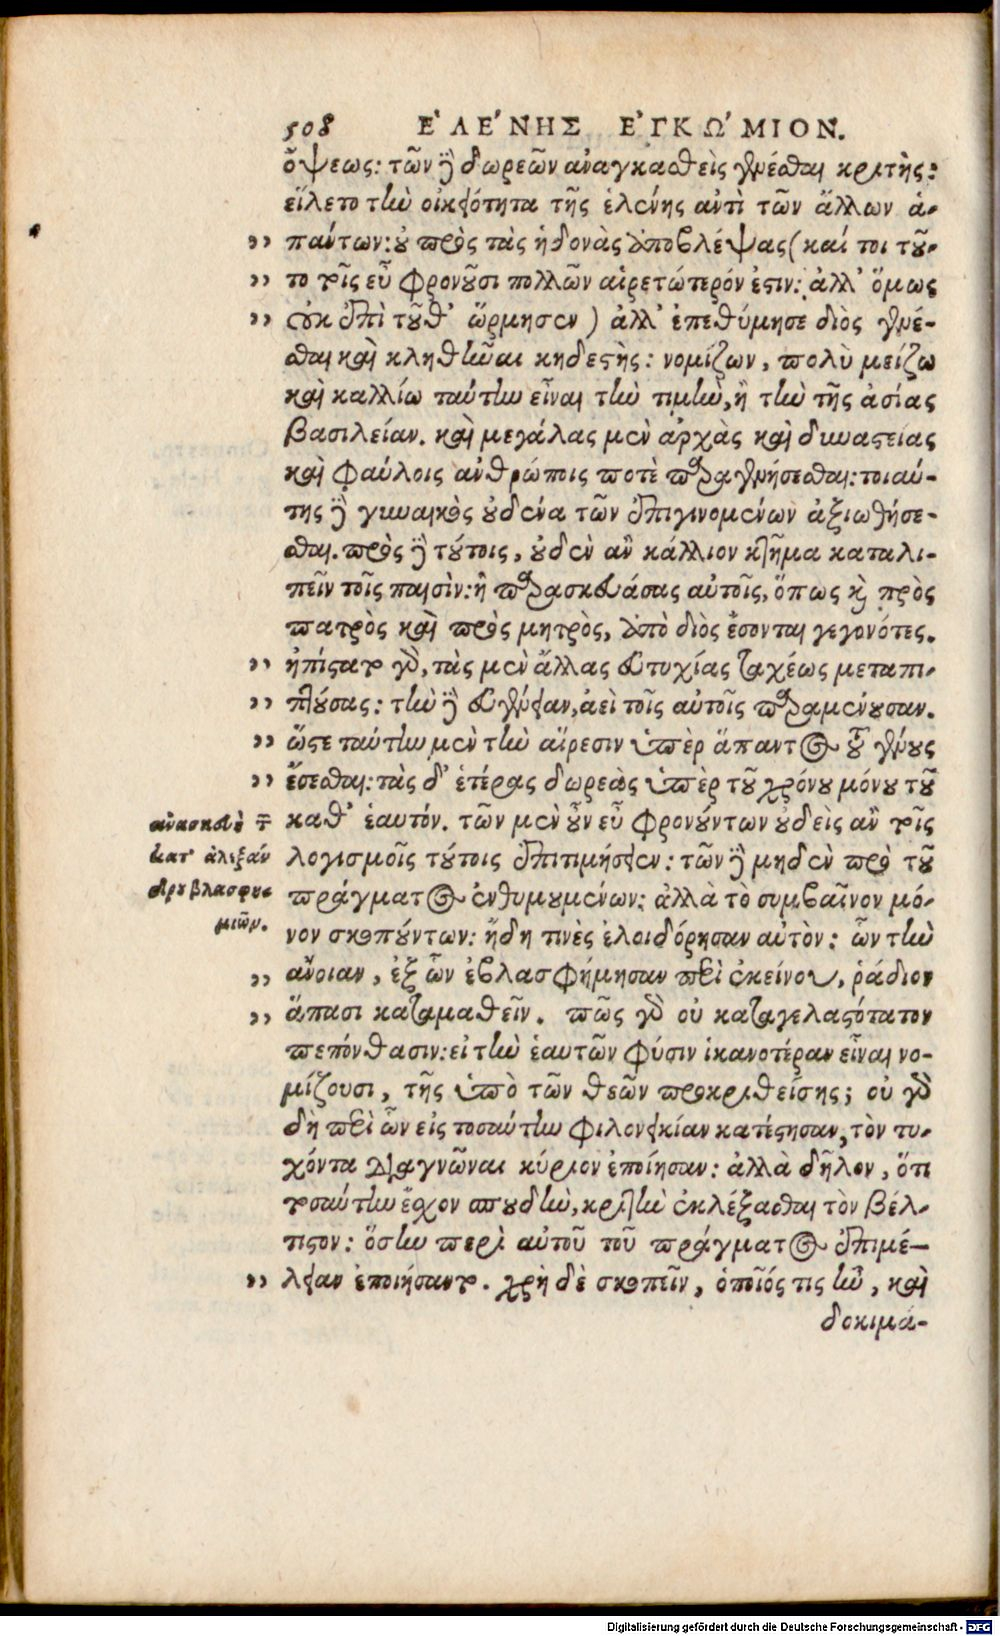 508 ΕʼΛΕʼΝΗΣ ΕʼΓΚΩʼΜΙΟΝ.
ὄψεως: τῶν δὲ δωρεῶν ἀναγκασθεὶς γενέσθαι κριτὴς:
εἵλετο τὴν οἰκειότητα τῆς ἑλένης ἀντὶ τῶν ἄλλων ἁ-
" πάντων: οὐ πρὸς τὰς ἡδονὰς ἀποβλέψας (καί τοι τοῦ-
" το τοῖς εὖ φρονοῦσι πολλῶν αἱρετώτερόν ἐστιν: ἀλλ' ὅμως
" οὐκ ἐπὶ τοῦθ' ὥρμησεν) ἀλλ' ἐπεθύμησε διὸς γενέ-
σθαι καὶ κληθῆναι κηδεστὴς: νομίζων, πολὺ μείζω
καὶ καλλίω ταύτην εἶναι τὴν τιμὴν, ἢ τὴν τῆς ἀσίας
βασιλείαν. καὶ μεγάλας μὲν ἀρχὰς καὶ δυναστείας
καὶ φαύλοις ἀνθρώποις ποτὲ παραγενήσεσθαι: τοιαύ-
της δὲ γυναικὸς οὐδένα τῶν ἐπιγινομένων ἀξιωθήσε-
σθαι. πρὸς δὲ τούτοις, οὐδὲν ἂν κάλλιον κτῆμα καταλι-
πεῖν τοῖς παισὶν: ἢ παρασκευάσας αὐτοῖς, ὅπως καὶ πρὸς
πατρὸς καὶ πρὸς μητρὸς, ἀπὸ διὸς ἔσονται γεγονότες.
" ἠπίστατο γὰρ, τὰς μὲν ἄλλας εὐτυχίας ταχέως μεταπι-
" πτούσας: τὴν δὲ εὐγένειαν, ἀεὶ τοῖς αὐτοῖς παραμένουσαν.
" ὥστε ταύτην μὲν τὴν αἵρεσιν ὑπὲρ ἅπαντος τοῦ γένους
" ἔσεσθαι: τὰς δ' ἑτέρας δωρεὰς ὑπὲρ τοῦ χρόνου μόνου τοῦ
ἀνασκευὴ τῶν καθ' ἑαυτόν. τῶν μὲν οὖν εὖ φρονούντων οὐδεὶς ἂν τοῖς
κατ' ἀλεξάν λογισμοῖς τούτοις ἐπιτιμήσειεν: τῶν δὲ μηδὲν πρὸ τοῦ
δρου βλασφη πράγματος ἐνθυμουμένων: ἀλλὰ τὸ συμβαῖνον μό-
μιῶν. νον σκοπούντων: ἤδη τινὲς ἐλοιδόρησαν αὐτὸν: ὧν τὴν
" ἄνοιαν, ἐξ ὧν ἐβλασφήμησαν περὶ ἐκείνου, ῥάδιον
" ἅπασι καταμαθεῖν. πῶς γὰρ οὐ καταγελαστότατον
πεπόνθασιν: εἰ τὴν ἑαυτῶν φύσιν ἱκανοτέραν εἶναι νο-
μίζουσι, τῆς ὑπὸ τῶν θεῶν προκριθείσης; οὐ γὰρ
δὴ περὶ ὧν εἰς τοσαύτην φιλονεικίαν κατέστησαν, τὸν τυ-
χόντα διαγνῶναι κύριον ἐποίησαν: ἀλλὰ δῆλον, ὅτι
τοσαύτην ἔχον σπουδὴν, κριτὴν ἐκλέξασθαι τὸν βέλ-
τιστον: ὅσην περὶ αὐτοῦ τοῦ πράγματος ἐπιμέ-
" λειαν ἐποιήσαντο. χρὴ δὲ σκοπεῖν, ὁποῖός τις ἦν, καὶ
δοκιμά-
Digitalisierung gefördert durch die Deutsche Forschungsgemeinschaft - DFG